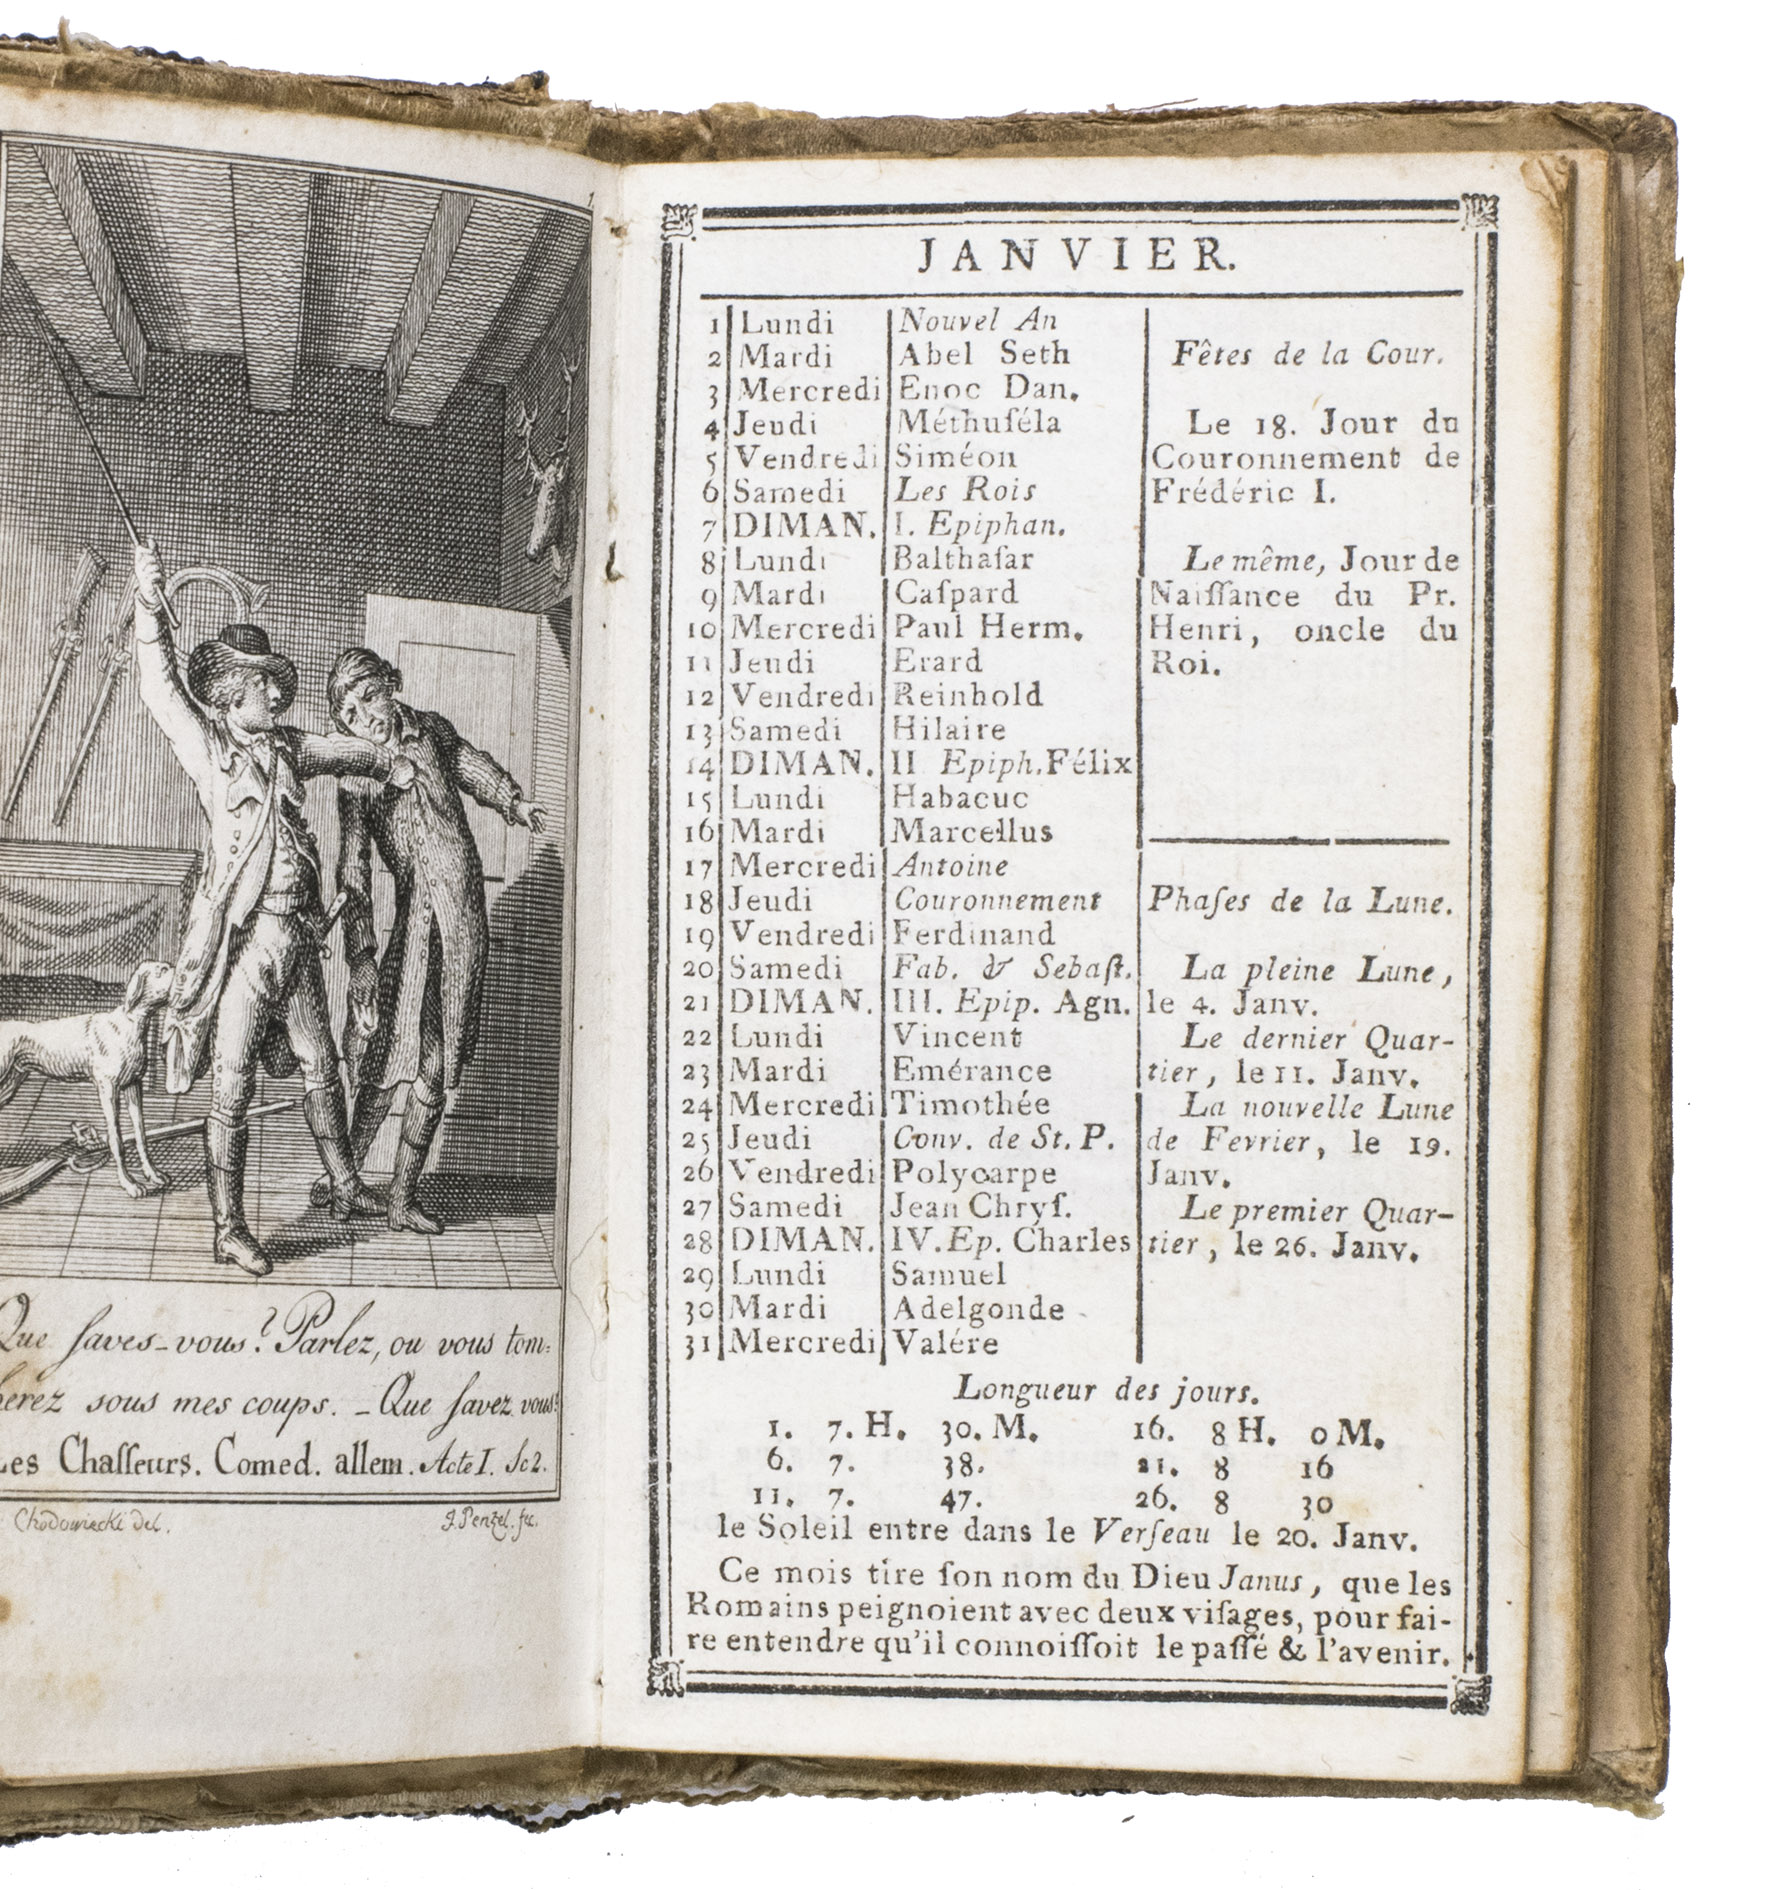 Que ſaves-vous? Parlez, ou vous tom:
herez sous mes coups. - Que ſavez vous?
Les Chaſſeurs. Comed. allem. Acte I. Sc2.
Chodowiecki del.
J. Penzel. fec.
JANVIER.
1 Lundi Nouvel An
2 Mardi Abel Seth
3 Mercredi Enoc Dan.
4 Jeudi Méthuſéla
5 Vendredi Siméon
6 Samedi Les Rois
7 DIMAN. I. Epiphan.
8 Lundi Balthaſar
9 Mardi Caſpard
10 Mercredi Paul Herm.
11 Jeudi Erard
12 Vendredi Reinhold
13 Samedi Hilaire
14 DIMAN. II Epiph. Félix
15 Lundi Habacuc
16 Mardi Marcellus
17 Mercredi Antoine
18 Jeudi Couronnement
19 Vendredi Ferdinand
20 Samedi Fab. & Sebaſt.
21 DIMAN. III. Epip. Agn.
22 Lundi Vincent
23 Mardi Emérance
24 Mercredi Timothée
25 Jeudi Conv. de St. P.
26 Vendredi Polycarpe
27 Samedi Jean Chryſ.
28 DIMAN. IV. Ep. Charles
29 Lundi Samuel
30 Mardi Adelgonde
31 Mercredi Valére
Fêtes de la Cour.
Le 18. Jour du
Couronnement de
Frédéric I.
Le même, Jour de
Naiſſance du Pr.
Henri, oncle du
Roi.
Phaſes de la Lune.
La pleine Lune,
le 4. Janv.
Le dernier Quar-
tier, le 11. Janv.
La nouvelle Lune
de Fevrier, le 19.
Janv.
Le premier Quar-
tier, le 26. Janv.
Longueur des jours.
1. 7. H. 30. M. 16. 8 H. 0 M.
6. 7. 38. 21. 8 16
11. 7. 47. 26. 8 30
le Soleil entre dans le Verſeau le 20. Janv.
Ce mois tire ſon nom du Dieu Janus, que les
Romains peignoient avec deux viſages, pour fai-
re entendre qu'il connoiſſoit le paſſé & l'avenir.